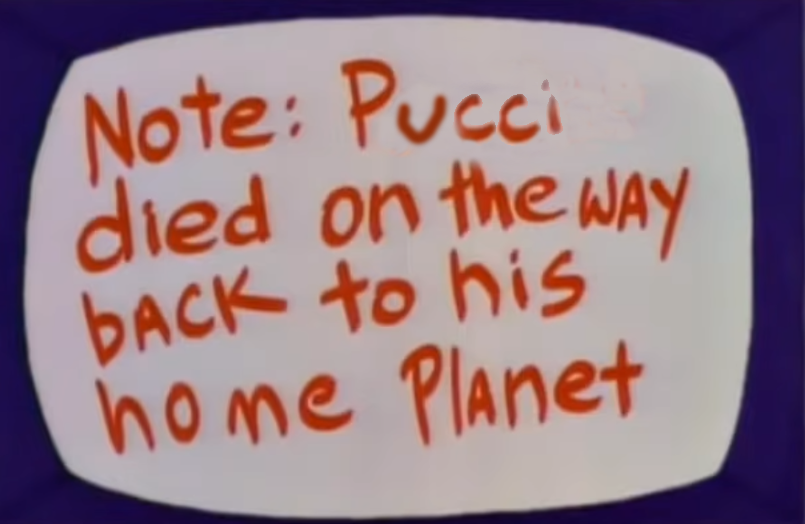 Note: Pucci
died on the WAY
bACK to his
home Planet